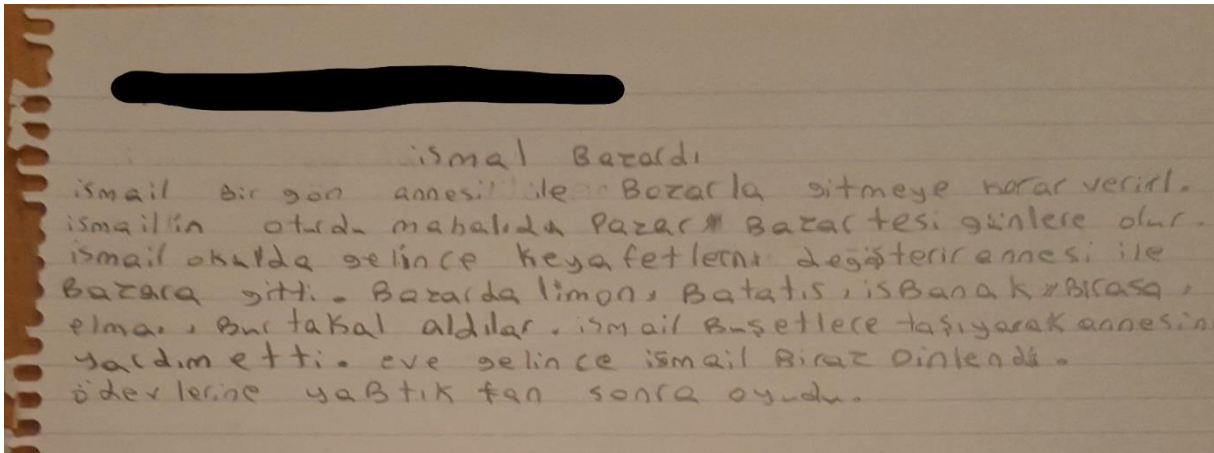 ismal Bazardı
ismail Bir gön annesi ile Bozarla gitmeye korar verirl.
ismaillin oturdu mahalıda Pazar Bazartesi günlere olur.
ismail okulda gelince keyafetlerni değişterir annesi ile
Bazara gitti. Bazarda limon, Batatıs, isBanak, Bırasa,
elma, Burtakal aldılar. ismail Buşetlere taşıyarak annesin
yardım etti. eve gelince ismail Biraz Dinlendi.
ödevlerine yaBtıktan sonra oyudu.